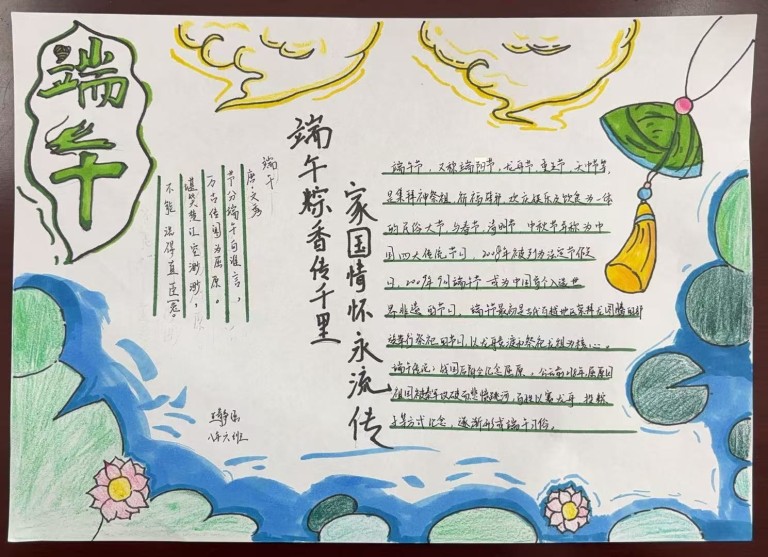 端午
端午
唐·文秀
节分端午自谁言，
万古传闻为屈原。
堪笑楚江空渺渺，
不能洗得直臣冤。
端午粽香传千里
家国情怀永流传
端午节，又称端阳节、龙舟节、重五节、天中节等，
是集拜神祭祖、祈福辟邪、欢庆娱乐及饮食为一体
的民俗大节 与春节、清明节、中秋节并称为中
国四大传统节日。2008年被列为法定节假
日，2009年9月端午节 成为中国首个入选世
界非遗的节日，端午最初是古代百越地区崇拜龙图腾的部
族举行祭祀的节日，以龙舟竞渡和祭祀龙祖为核心。
端午传说：战国后期为纪念屈原，公元前278年，屈原因
祖国被秦军攻破而悲愤跳河，百姓以赛龙舟、投粽
子等方式纪念，逐渐形成端午习俗。
八年六班